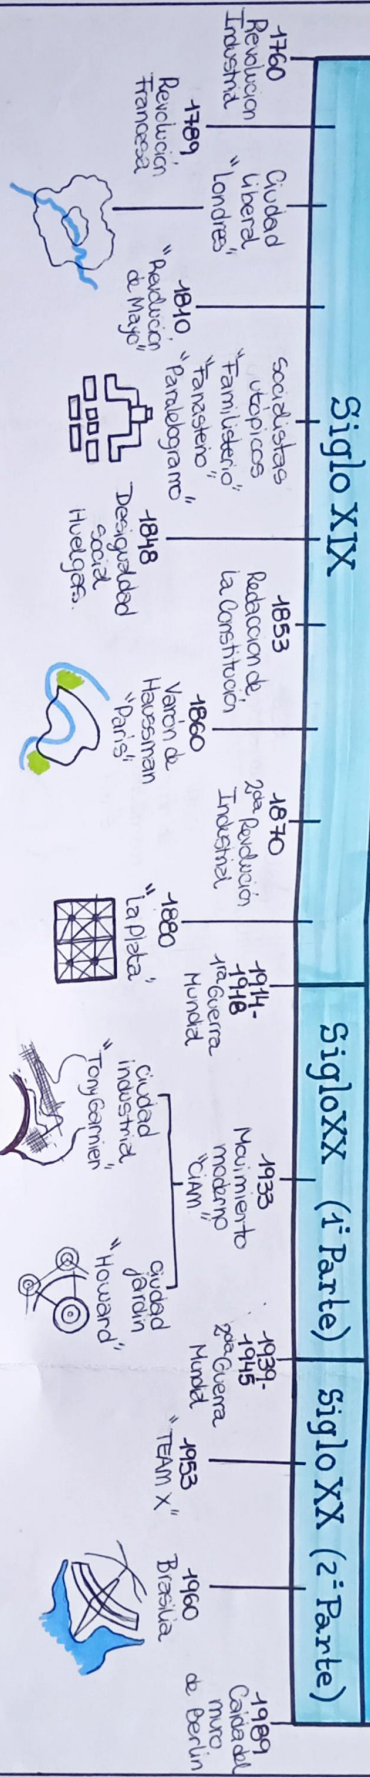 Siglo XIX
SigloXX (1ª Parte)
Siglo XX (2ª Parte)
-1760
Revolucion
Industrial
-1789
Revolución
Francesa
Ciudad
Liberal
"Londres"
-1810
"Revolución
de Mayo"
Socialistas
utópicos
"Familisterio"
"Fanasterio"
"Paralelogramo"
-1848
Desigualdad
social
Huelgas.
-1853
Redaccion de
la Constitución
-1860
Varón de
Haussman
"Paris"
-1870
2da Revolución
Industrial
-1880
"La Plata"
-1914-
1918
1ra Guerra
Mundial
-1933
Movimiento
moderno
"CIAM"
Ciudad
industrial
"Tony Garnien"
ciudad
jardin
"Howard"
-1939-
1945
2da Guerra
Mundial
-1953
"TEAM X"
-1960
Brasilia
-1989
Caida del
muro
de Berlin